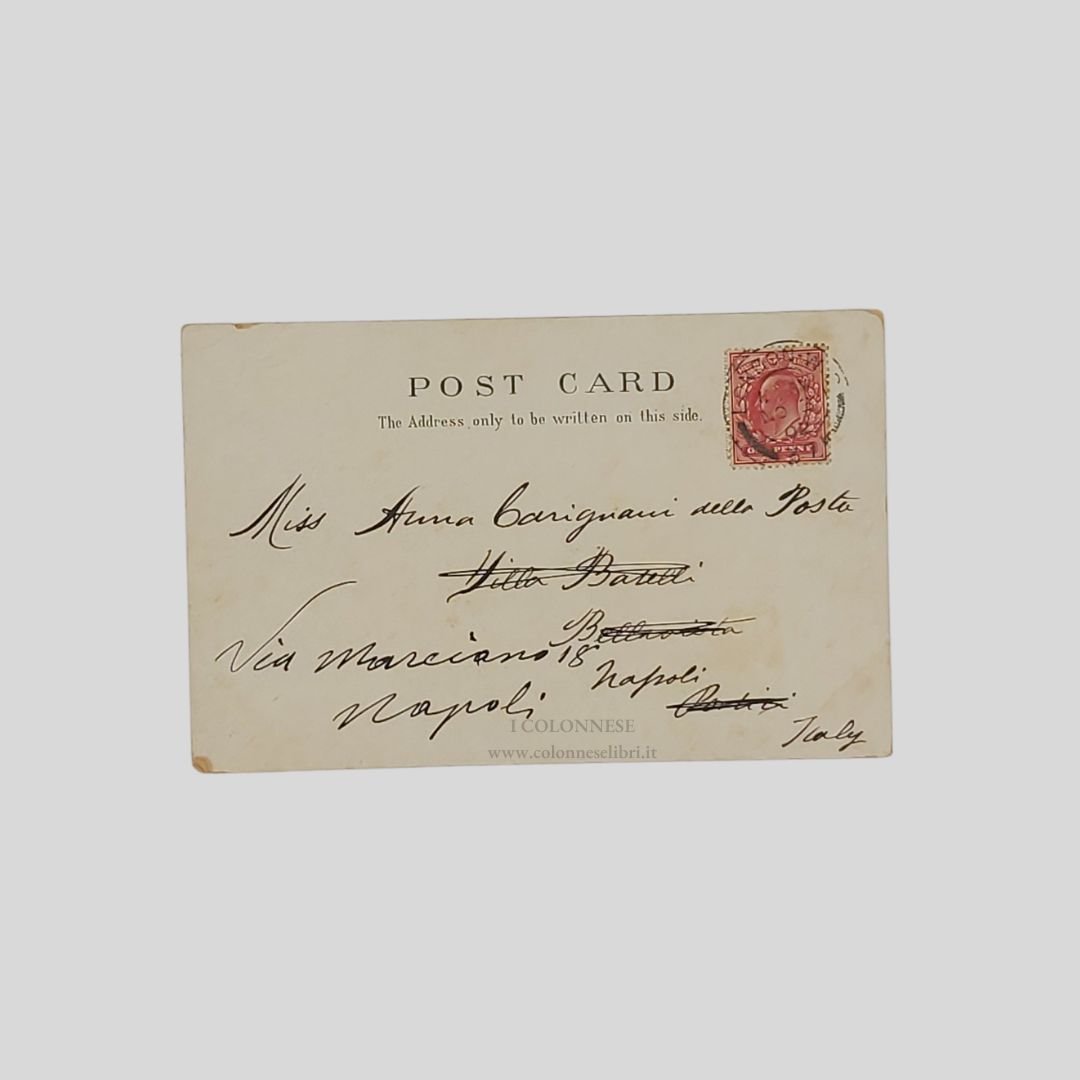 POST CARD
The Address only to be written on this side.
LONDON.W
ONE PENNY
Miss Anna Carignani della Posta
Villa Batelli
Bellavista
Via Marciano 18
Napoli
Napoli
Portici
Italy
I COLONNESE
www.colonneselibri.it